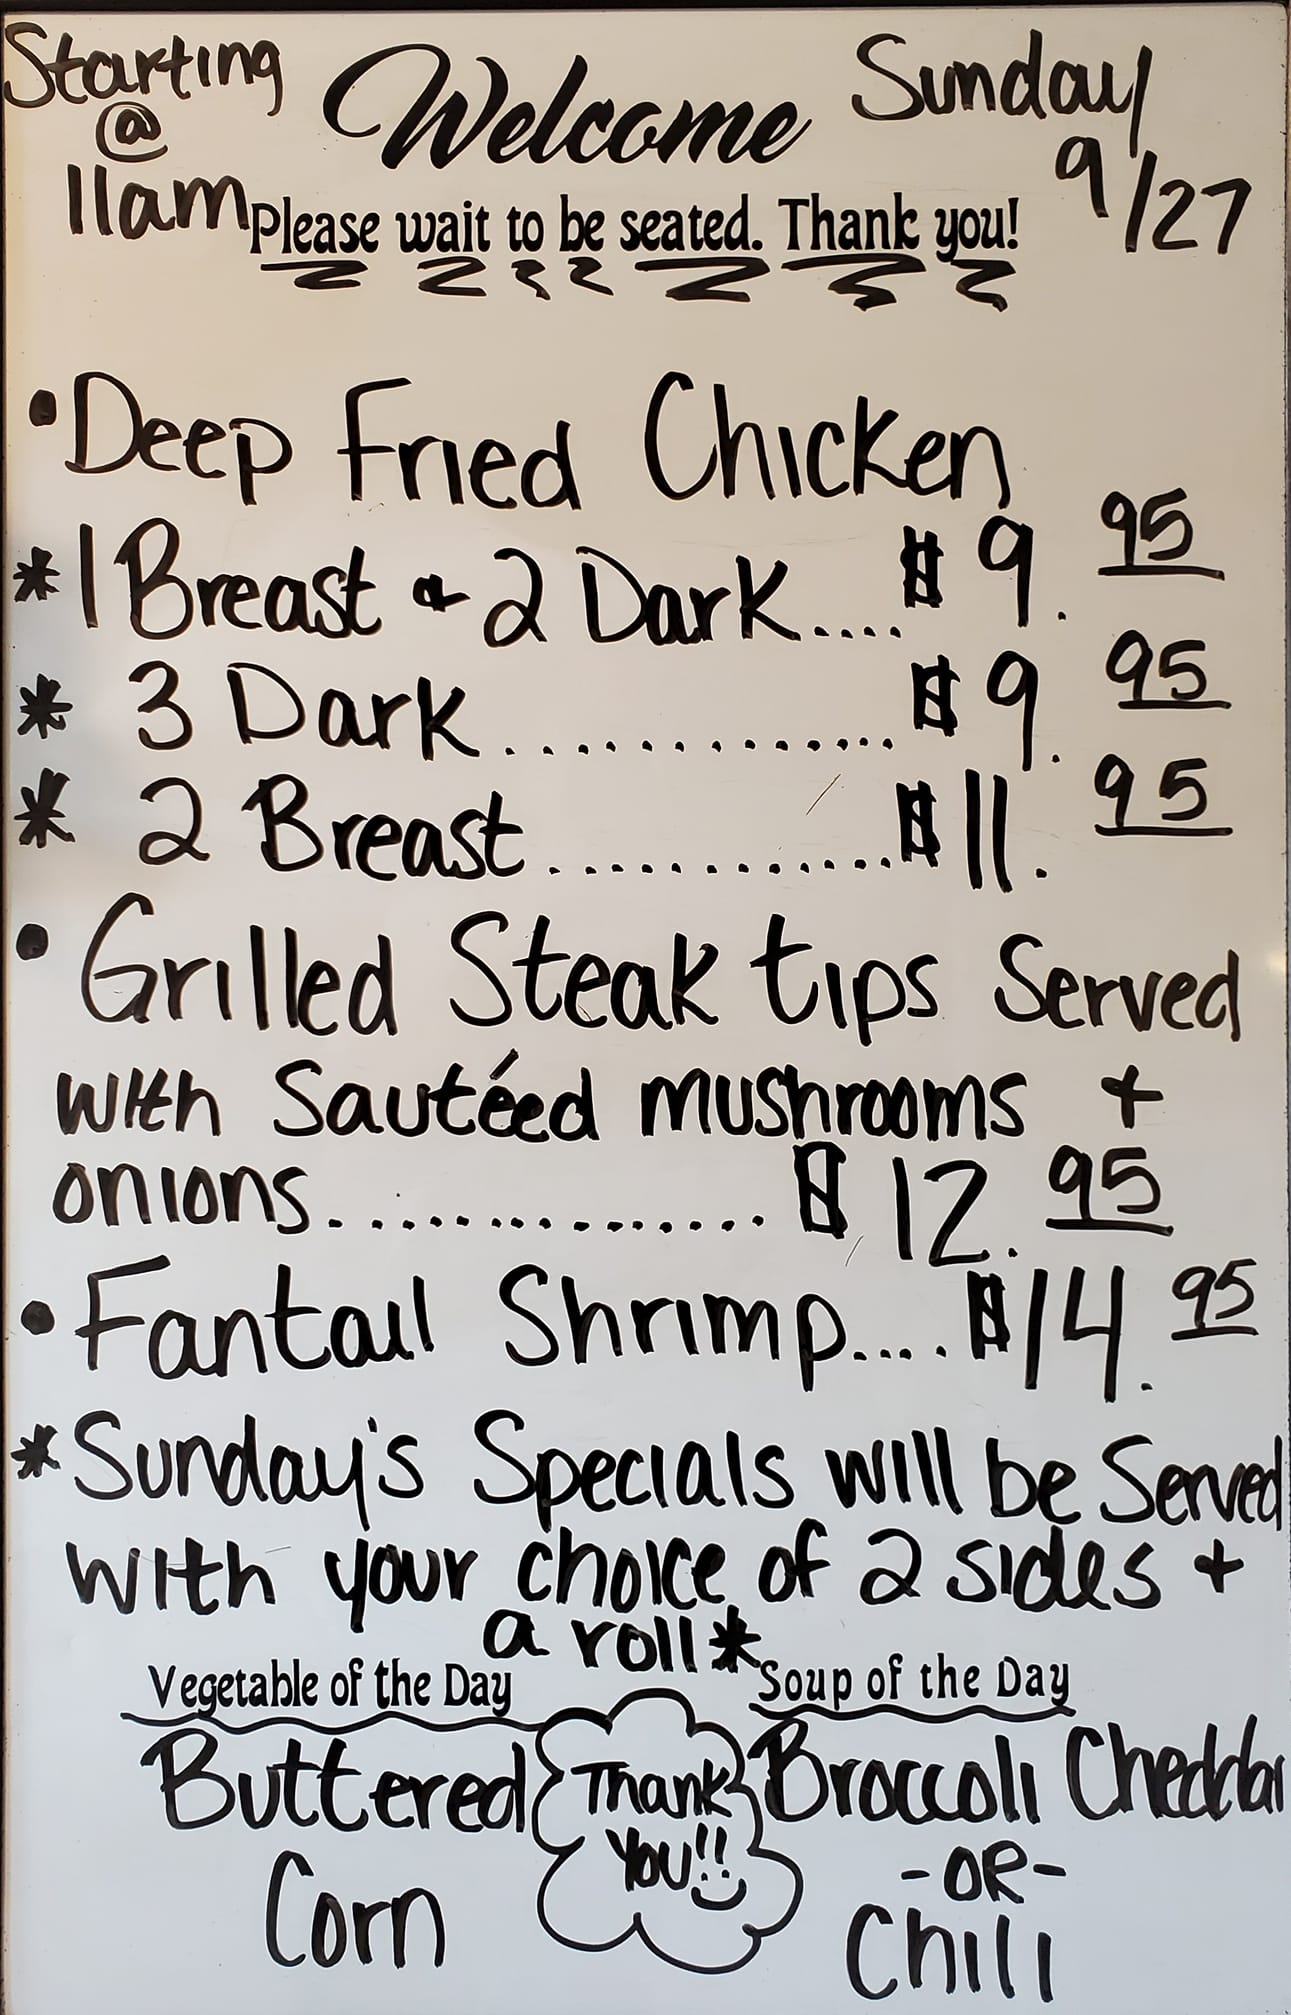 Starting
@
11am
Welcome
Sunday
9/27
Please wait to be seated. Thank you!
• Deep Fried Chicken
* 1 Breast & 2 Dark.... $9.95
* 3 Dark............... $9.95
* 2 Breast............. $11.95
• Grilled Steak tips Served
with Sautéed mushrooms +
onions................ $12.95
• Fantail Shrimp.... $14.95
* Sunday's Specials will be Served
with your choice of 2 sides +
a roll *
Vegetable of the Day
Buttered
Corn
Thank
You!!
Soup of the Day
Broccoli Cheddar
-OR-
Chili